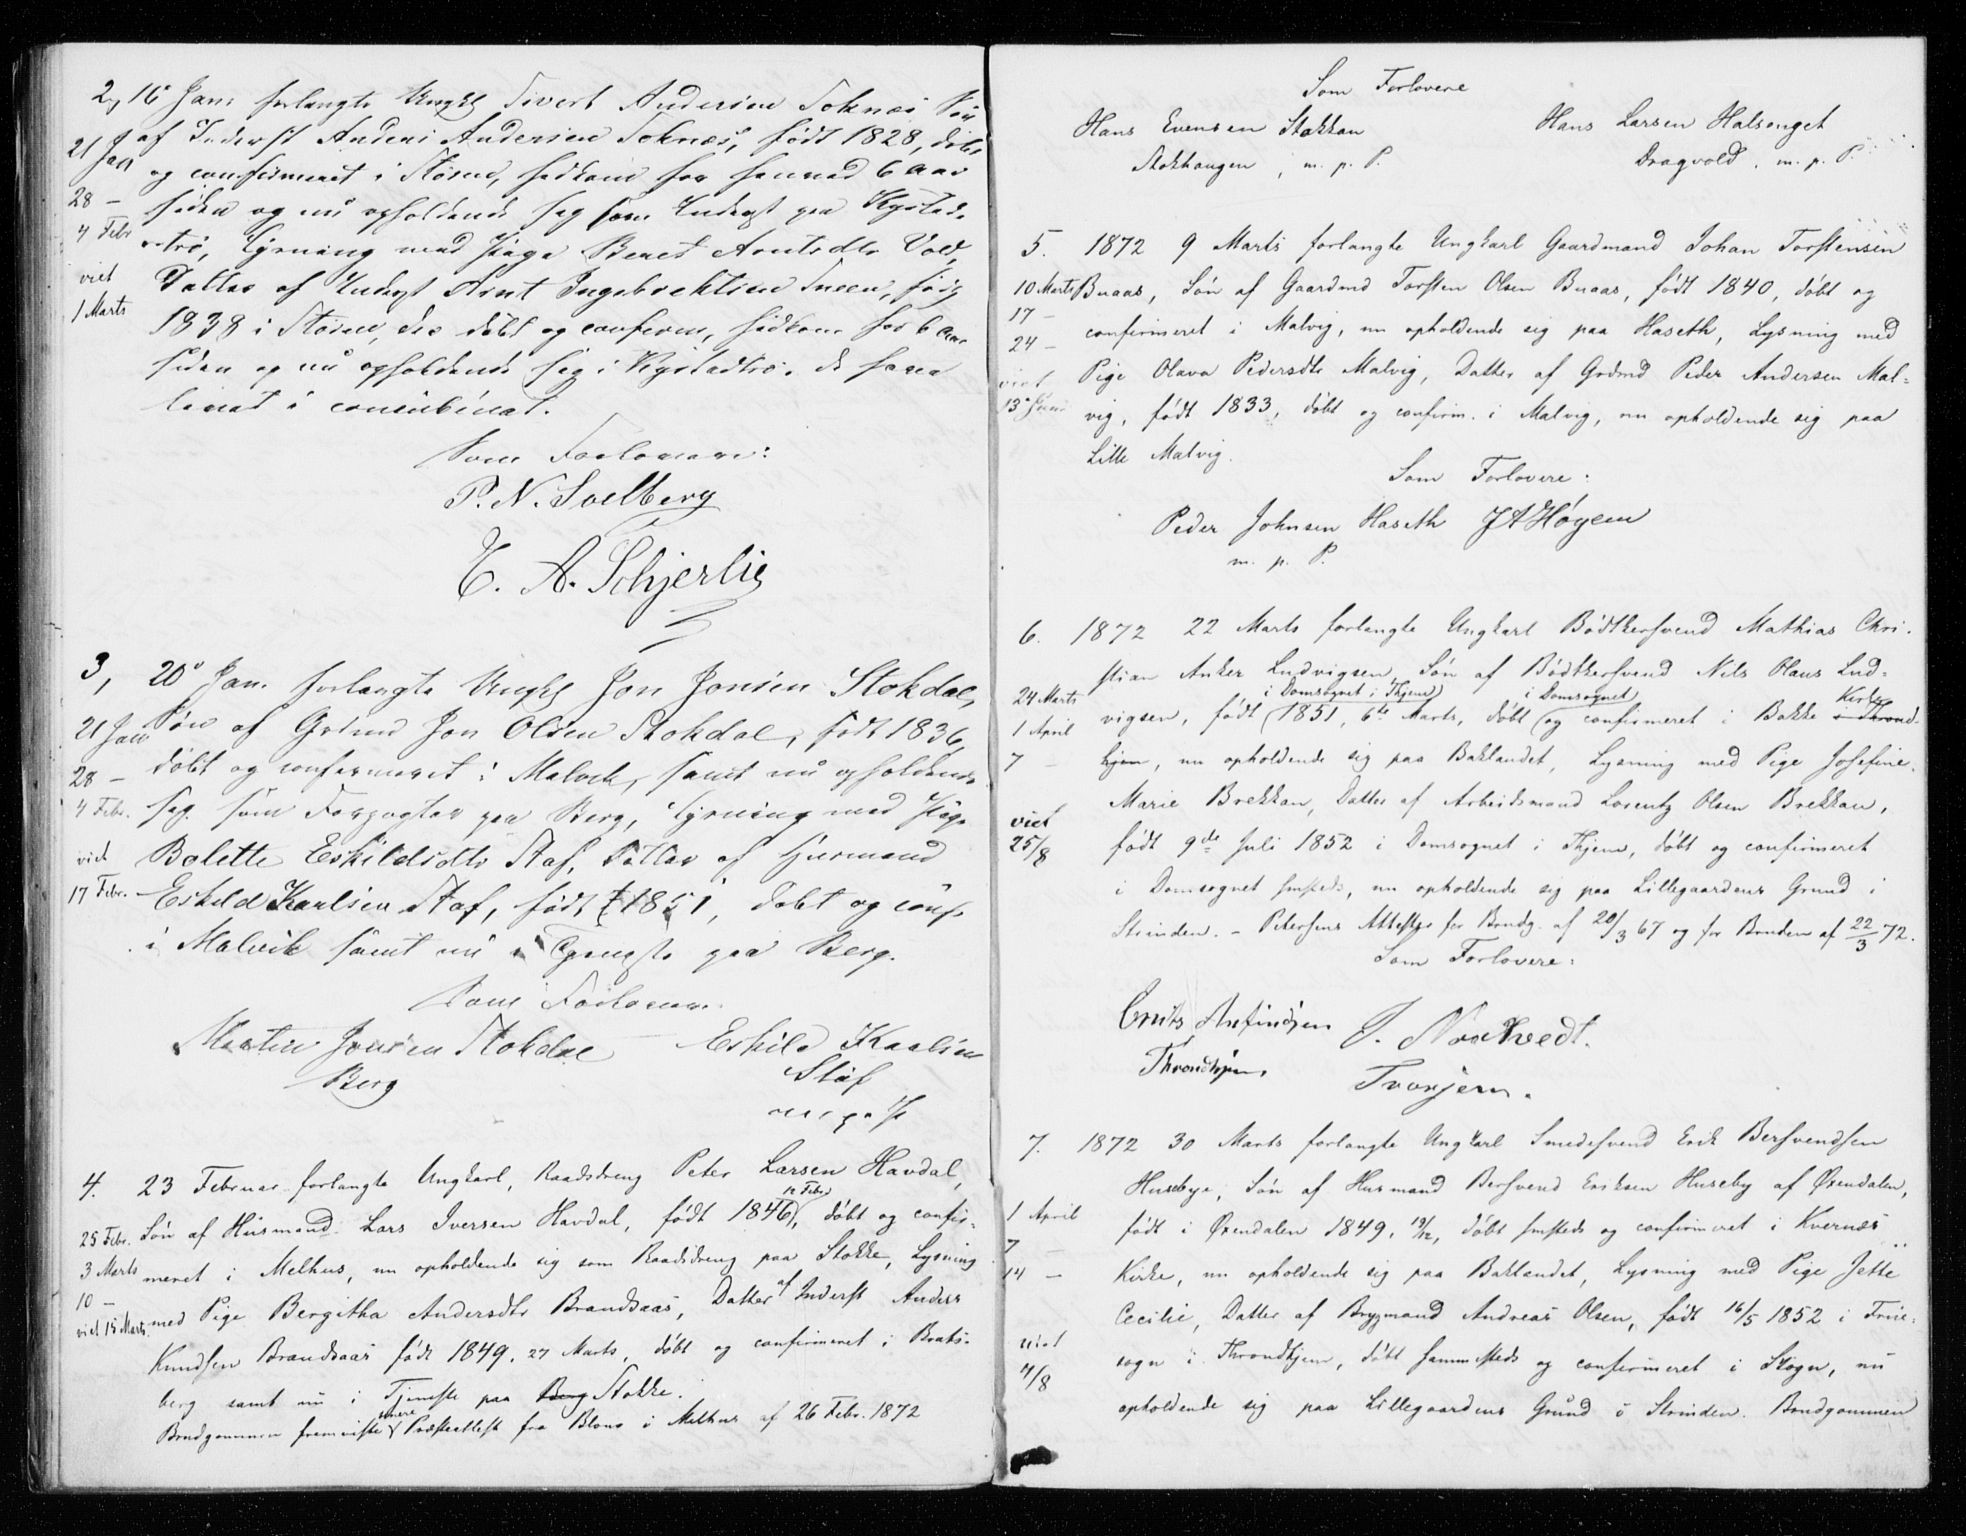 2, 16 Jan. forlangte Ungk. Sivert Andersen Toknæs Søn
af Inderst Anders Andersen Toknæs, født 1828, døbt
21 Jan og confirmeret i Støren, hidkom for henved 6 Aar
28 – siden og nu opholdende sig som Inderst paa Rystad-
4 Febr. trø, Lysning med Pige Beret Arntsdtr Vold,
viet Datter af Inderst Arnt Ingebrektsen, født
1 Marts 1838 i Støren, der døbt og confirm., hidkom for 6 Aar
siden og nu opholdende sig i Rystadtrø. de have
levet i concubinat.
Som Forlovere:
P. N. Soelberg
E. A. Schjerlie
3, 20 Jan. forlangte Ungk. Jon Jonsen Stokdal,
21 Jan Søn af Grdmd Jon Olsen Stokdal, født 1836,
28 – døbt og confirmeret i Malvik, samt nu opholdende
4 Febr. sig som Forpagter paa Berg, Lysning med Pige
viet Bolette Eskildsdtr Staf, Datter af Husmand
17 Febr. Eskild Karlsen Staf, født 1851, døbt og conf.
i Malvik samt nu i Tjeneste paa Berg.
Som Forlovere
Martin Jonsen Stokdal Eskild Karlsen
Berg Staf
m. p. P.
4. 23 Februar forlangte Ungkarl, Raadsdreng Peter Larsen Havdal,
12 Febr.
25 Febr. Søn af Husmand Lars Iversen Havdal, født 1846, døbt og confir-
3 Marts meret i Melhus, nu opholdende sig som Raadsdreng paa Stokke, Lysning
10 – med Pige Bergitha Andersdtr Brandsaas, Datter af Inderst Anders
viet 15 Marts. Knudsen Brandsaas født 1849, 27 Marts, døbt og confirmeret i Brats-
berg samt nu i Tjeneste paa Berg Stokke.
Brudgommen fremviste senere Præsteattest fra Blom i Melhus af 26 Febr. 1872
Som Forlovere
Hans Evensen Stokkan Hans Larsen Halsenget
Stokhaugen, m. p. P. Dragvold, m. p. P.
5. 1872 9 Marts forlangte Ungkarl Gaardmand Johan Torstensen
10 Marts Buaas, Søn af Gaardmd Torsten Olsen Buaas, født 1840, døbt og
17 –
24 – confirmeret i Malvig, nu opholdende sig paa Haseth, Lysning med
viet Pige Olava Pedersdtr Malvig, Datter af Grdmd Peder Andersen Mal-
13 Juni vig, født 1833, døbt og confirm. i Malvig, nu opholdende sig paa
Lille Malvig.
Som Forlovere:
Peder Johnsen Haseth J A Høyem
m. p. P.
6. 1872 22 Marts forlangte Ungkarl Bødkersvend Mathias Chri-
stian Anker Ludvigsen, Søn af Bødkersvend Nils Olaus Lud-
i Domsognet i Thjem i Domsognet Kirke
24 Marts vigsen, født 1851, 6te Marts, døbt og confirmeret i Bakke i Thrond-
1 April
7 – hjem, nu opholdende sig paa Baklandet, Lysning med Pige Josefine
Marie Brekkan, Datter af Arbeidsmand Lorentz Olsen Brekkan,
viet
25/8 født 9de Juli 1852 i Domsognet i Thjem, døbt og confirmeret
i Domsognet smsteds, nu opholdende sig paa Lillegaardens Grund i
Strinden. – Petersens Attester for Brudg. af 20/3 67 og for Bruden af 22/3 72.
Som Forlovere:
Arfindsen J. Nordtvedt.
Throndhjem, Tronjem.
7. 1872 30 Marts forlangte Ungkarl Smedesvend Erik Bersvendsen
Husebye, Søn af Husmand Bersvend Eriksen Huseby af Øxendalen,
1 April født i Øxendalen 1849, 19/12, døbt smsteds og confirmeret i Kvernæs
7 –
14 – Kirke, nu opholdende sig paa Baklandet, Lysning med Pige Jette
Cecilie, Datter af Brygmand Andreas Olsen, født 16/5 1852 i Frue-
viet sogn i Throndhjem, døbt sammesteds og confirmeret i Skogn, nu
4/8 opholdende sig paa Lillegaardens Grund i Strinden. Brudgommen